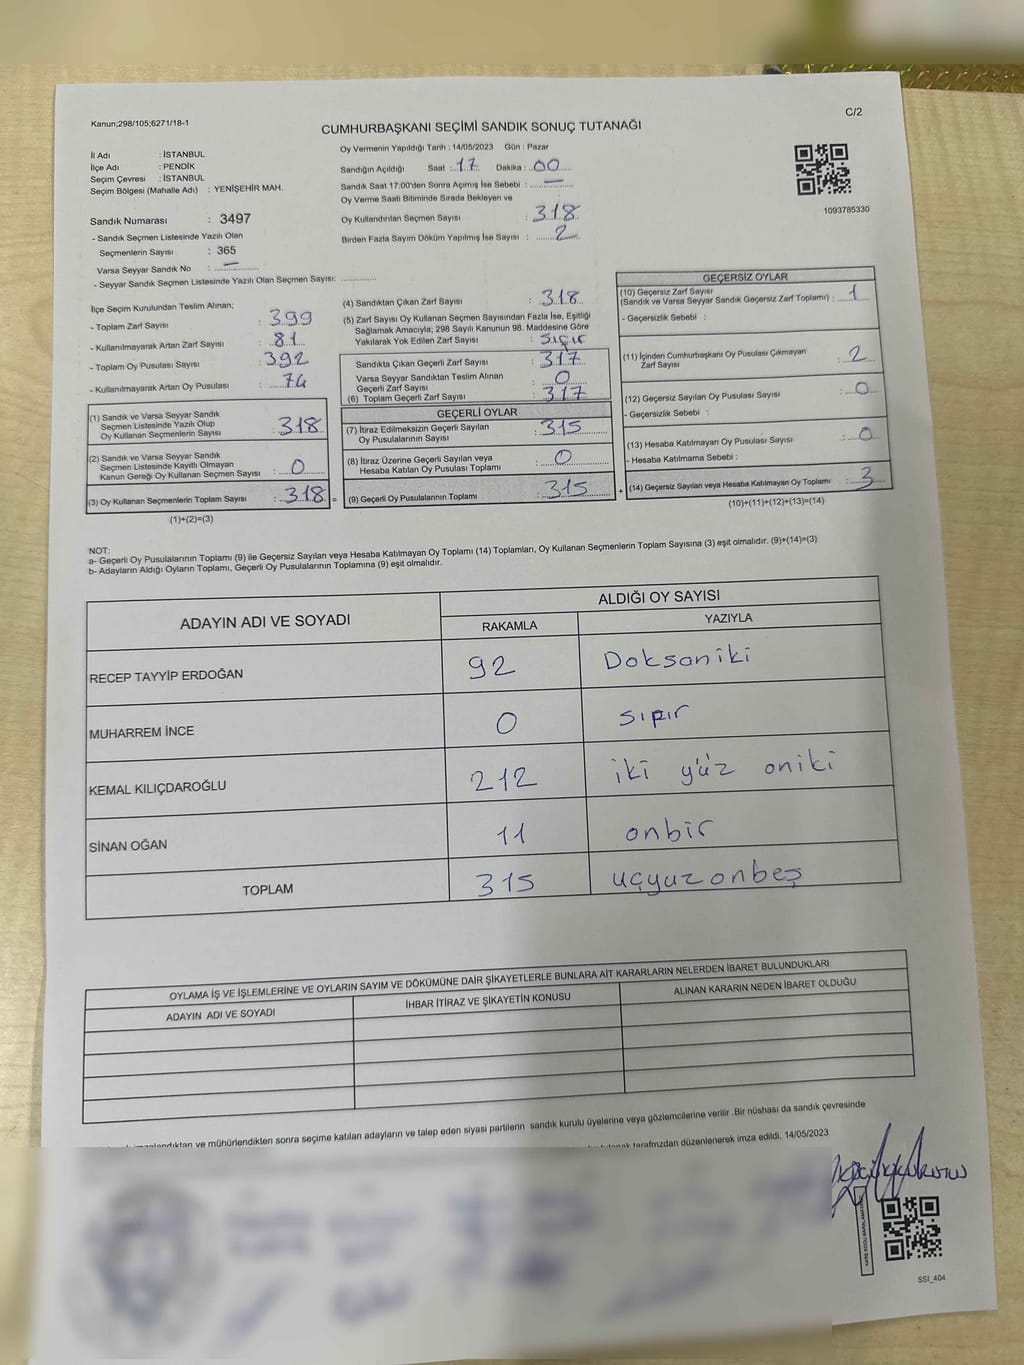 Kanun;298/105;6271/18-1
C/2
CUMHURBAŞKANI SEÇİMİ SANDIK SONUÇ TUTANAĞI
İl Adı : İSTANBUL
İlçe Adı : PENDİK
Seçim Çevresi : İSTANBUL
Seçim Bölgesi (Mahalle Adı) : YENİŞEHİR MAH.
Sandık Numarası : 3497
- Sandık Seçmen Listesinde Yazılı Olan
Seçmenlerin Sayısı : 365
Varsa Seyyar Sandık No : —
- Seyyar Sandık Seçmen Listesinde Yazılı Olan Seçmen Sayısı: ................
Oy Vermenin Yapıldığı Tarih : 14/05/2023 Gün : Pazar
Sandığın Açıldığı Saat : 17 Dakika : 00
Sandık Saat 17:00'den Sonra Açımış İse Sebebi : —
Oy Verme Saati Bitiminde Sırada Bekleyen ve
Oy Kullandırılan Seçmen Sayısı : 318
Birden Fazla Sayım Döküm Yapılmış İse Sayısı : 2
1093785330
İlçe Seçim Kurulundan Teslim Alınan;
- Toplam Zarf Sayısı : 399
- Kullanılmayarak Artan Zarf Sayısı : 81
- Toplam Oy Pusulası Sayısı : 392
- Kullanılmayarak Artan Oy Pusulası : 74
(1) Sandık ve Varsa Seyyar Sandık
Seçmen Listesinde Yazılı Olup
Oy Kullanan Seçmenlerin Sayısı : 318
(2) Sandık ve Varsa Seyyar Sandık
Seçmen Listesinde Kayıtlı Olmayan
Kanun Gereği Oy Kullanan Seçmen Sayısı : 0
(3) Oy Kullanan Seçmenlerin Toplam Sayısı : 318 =
(1)+(2)=(3)
(4) Sandıktan Çıkan Zarf Sayısı : 318
(5) Zarf Sayısı Oy Kullanan Seçmen Sayısından Fazla İse, Eşitliği
Sağlamak Amacıyla; 298 Sayılı Kanunun 98. Maddesine Göre
Yakılarak Yok Edilen Zarf Sayısı : Sıfır
Sandıkta Çıkan Geçerli Zarf Sayısı : 317
Varsa Seyyar Sandıktan Teslim Alınan
Geçerli Zarf Sayısı : 0
(6) Toplam Geçerli Zarf Sayısı : 317
GEÇERLİ OYLAR
(7) İtiraz Edilmeksizin Geçerli Sayılan
Oy Pusulalarının Sayısı : 315
(8) İtiraz Üzerine Geçerli Sayılan veya
Hesaba Katılan Oy Pusulası Toplamı : 0
(9) Geçerli Oy Pusulalarının Toplamı : 315 +
GEÇERSİZ OYLAR
(10) Geçersiz Zarf Sayısı
(Sandık ve Varsa Seyyar Sandık Geçersiz Zarf Toplamı) : 1
- Geçersizlik Sebebi :
(11) İçinden Cumhurbaşkanı Oy Pusulası Çıkmayan
Zarf Sayısı : 2
(12) Geçersiz Sayılan Oy Pusulası Sayısı : 0
- Geçersizlik Sebebi :
(13) Hesaba Katılmayan Oy Pusulası Sayısı : 0
- Hesaba Katılmama Sebebi :
(14) Geçersiz Sayılan veya Hesaba Katılmayan Oy Toplamı : 3
(10)+(11)+(12)+(13)=(14)
NOT:
a- Geçerli Oy Pusulalarının Toplamı (9) ile Geçersiz Sayılan veya Hesaba Katılmayan Oy Toplamı (14) Toplamları, Oy Kullanan Seçmenlerin Toplam Sayısına (3) eşit olmalıdır. (9)+(14)=(3)
b- Adayların Aldığı Oyların Toplamı, Geçerli Oy Pusulalarının Toplamına (9) eşit olmalıdır.
ADAYIN ADI VE SOYADI ALDIĞI OY SAYISI
RAKAMLA YAZIYLA
RECEP TAYYİP ERDOĞAN 92 Doksaniki
MUHARREM İNCE 0 sıfır
KEMAL KILIÇDAROĞLU 212 iki yüz oniki
SİNAN OĞAN 11 onbir
TOPLAM 315 uçyuzonbeş
OYLAMA İŞ VE İŞLEMLERİNE VE OYLARIN SAYIM VE DÖKÜMÜNE DAİR ŞİKAYETLERLE BUNLARA AİT KARARLARIN NELERDEN İBARET BULUNDUKLARI
ADAYIN ADI VE SOYADI İHBAR İTİRAZ VE ŞİKAYETİN KONUSU ALINAN KARARIN NEDEN İBARET OLDUĞU
imzalandıktan ve mühürlendikten sonra seçime katılan adayların ve talep eden siyasi partilerin sandık kurulu üyelerine veya gözlemcilerine verilir .Bir nüshası da sandık çevresinde
tutanak tarafmzdan düzenlenerek imza edildi. 14/05/2023
SSI_404